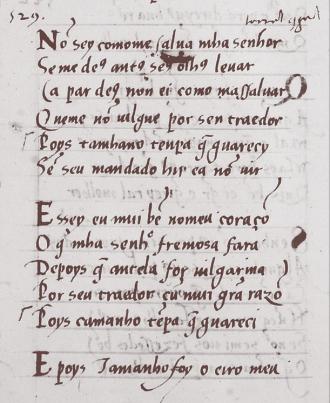 529.
Nō sey comome salua mha senhor
Seme deꝰ antꝰ seꝰ olhꝰ leuar
Ca par deꝰ non ei como massaluar
Queme nō uilgue por sen traedor
Poys tamhano tenpa q̄ guareçy
Sē seu mandado hir ea nō uir
E ssey eu mui bē no meu coraçō
O q̄ mha senhꝰ fremosa fara
Depoys q̄ antela foy uilgarma
Por seu traedor cū mui grā razō
Poys camanho tēpa q̄ guareci
E poys Tamanho foy o erro meu